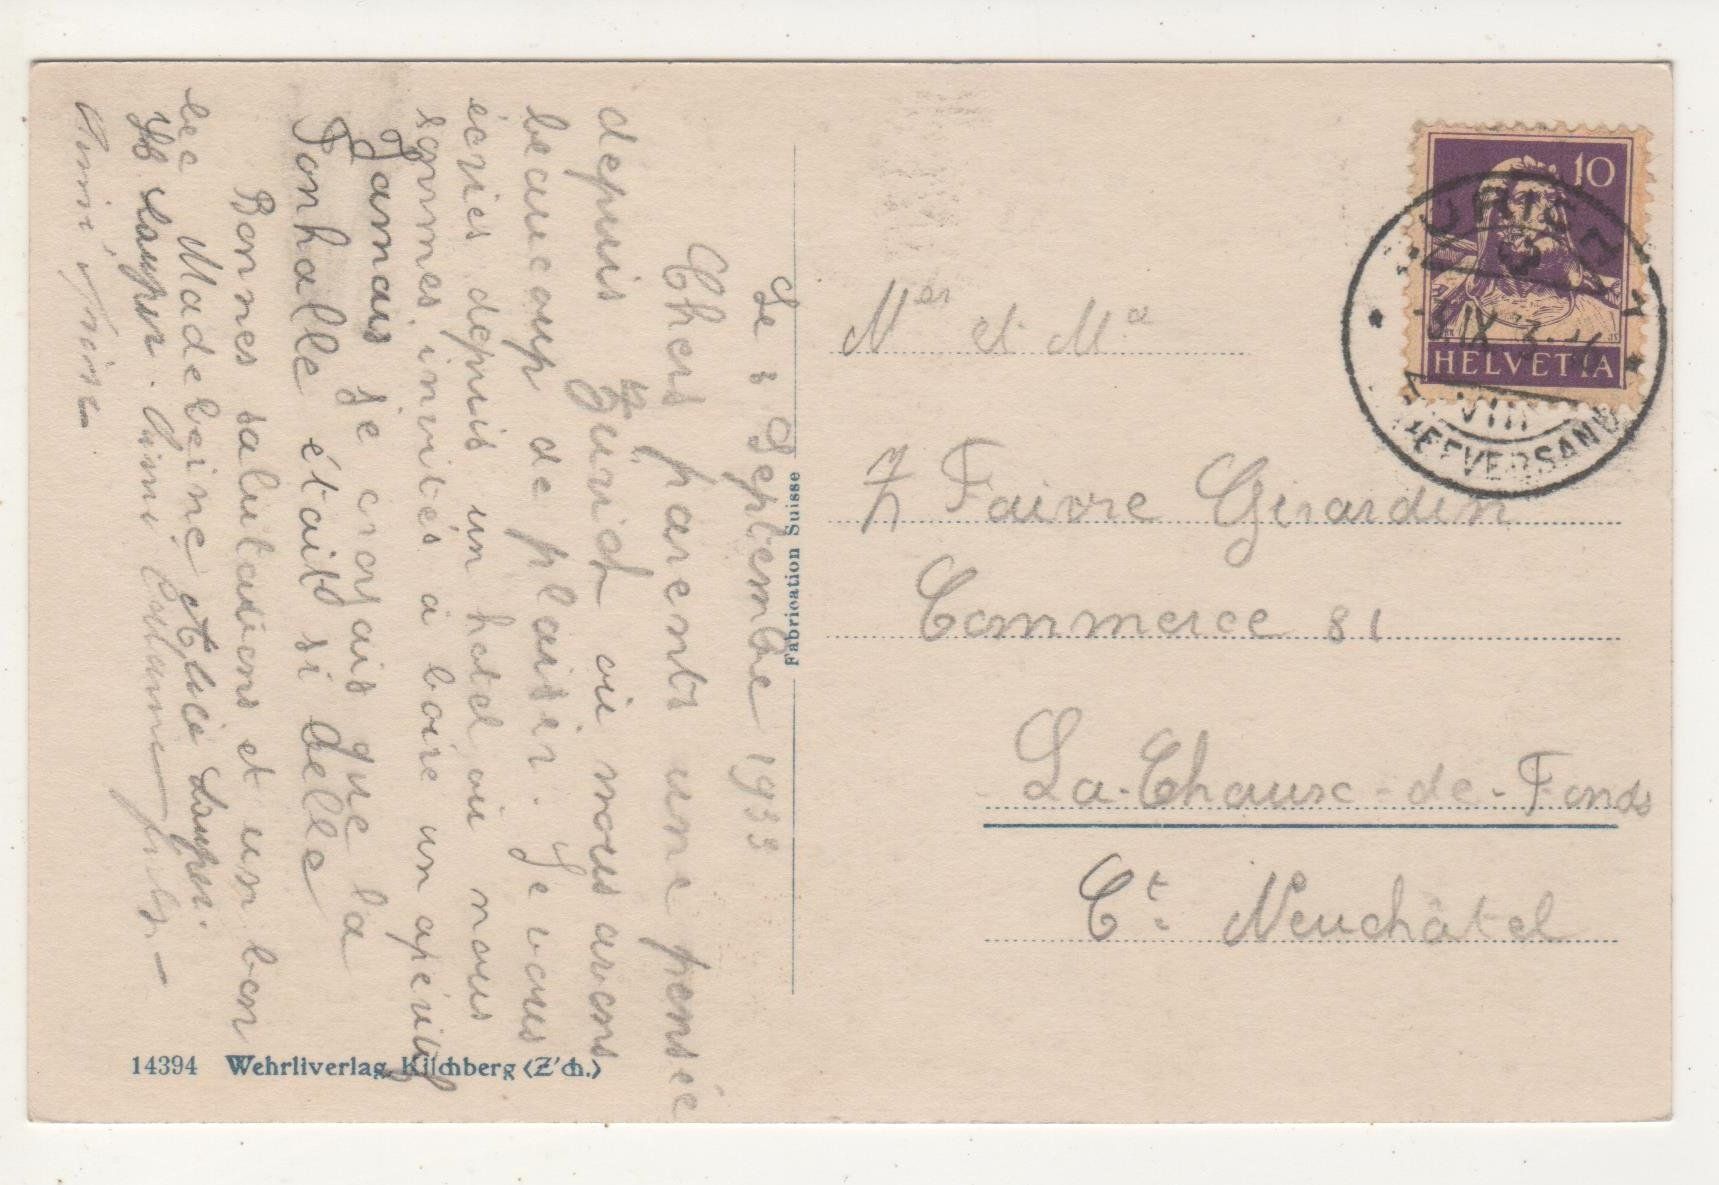 Le 3 Septembre 1933
Chers parents une pensée
depuis Zürich où nous avons
beaucoup de plaisir. Je vous
écris depuis un hotel où nous
sommes invités à boire un apéritif
Jamais je croyais que la
Tonhalle étaits si belle
Bonnes salutations et un bec
bec Madeleine Alice Lauper.
H. Lauper.
14394 Wehrliverlag, Kilchberg (Z'ch.)
Fabrication Suisse
10
HELVETIA
ZÜRICH 1
BRIEFVERSAND
VIII
Mr et Me
F. Faivre Girardin
Commerce 81
La-Chaux-de-Fonds
Ct. Neuchâtel